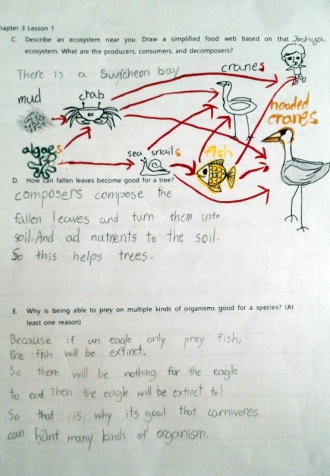 hapter 3 Lesson 1
C. Describe an ecosystem near you. Draw a simplified food web based on that
ecosystem. What are the producers, consumers, and decomposers?
There is a bay
cranes
mud
crab
hooded
cranes
algaes
sea snails
fish
D. How can fallen leaves become good for a tree?
composers compose the
fallen leaves and turn them into
soil. And ad nutrients to the soil.
So this helps trees.
E. Why is being able to prey on multiple kinds of organisms good for a species? (At
least one reason)
Because if an eagle only prey fish,
the fish will be extinct.
So there will be nothing for the eagle
to eat. Then the eagle will be extinct to!
So that is why its good that carnivores
can hunt many kinds of organism.